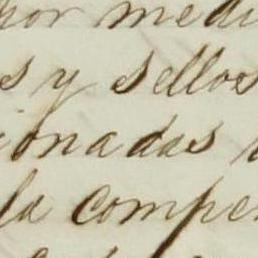 por medi
s y sellos
ionadas
la compen